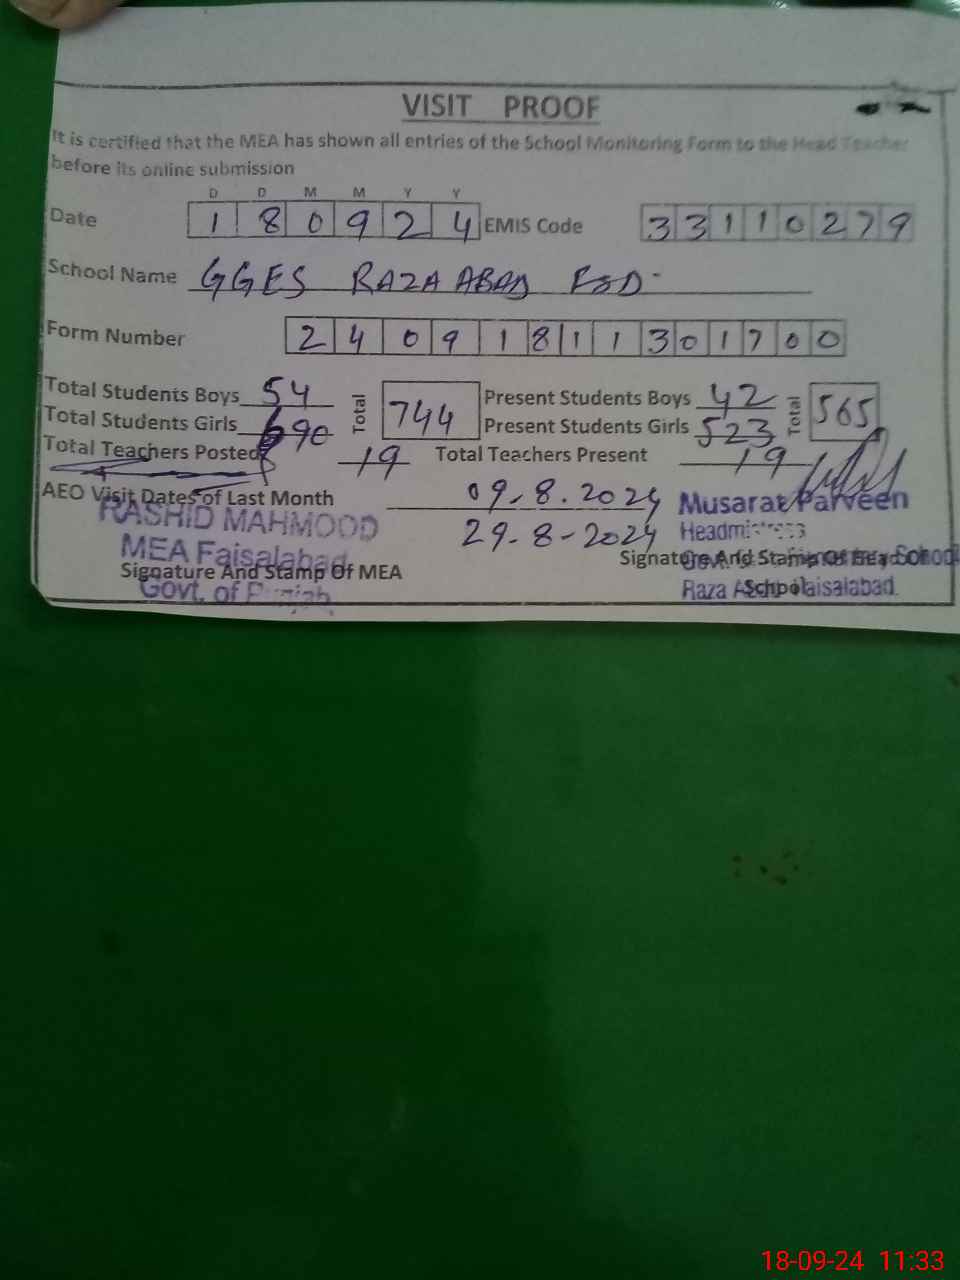 VISIT PROOF
It is certified that the MEA has shown all entries of the School Monitoring Form to the Head Teacher
before its online submission
D D M M Y Y
Date 1 8 0 9 2 4 EMIS Code 3 3 1 1 0 2 7 9
School Name GGES RAZAABAD FSD
Form Number 2 4 0 9 1 8 1 1 3 0 1 7 0 0
Total Students Boys 54 Total 744 Present Students Boys 42 Total 565
Total Students Girls 690 Present Students Girls 523
Total Teachers Posted 19 Total Teachers Present 19
AEO Visit Dates of Last Month 09.8.2024
29-8-2024
RASHID MAHMOOD
MEA Faisalabad
Govt. of Punjab
Signature And Stamp Of MEA
Musarat Parveen
Headmistress
School
Raza Faisalabad.
Signature And Stamp Of Head Of
School
18-09-24 11:33